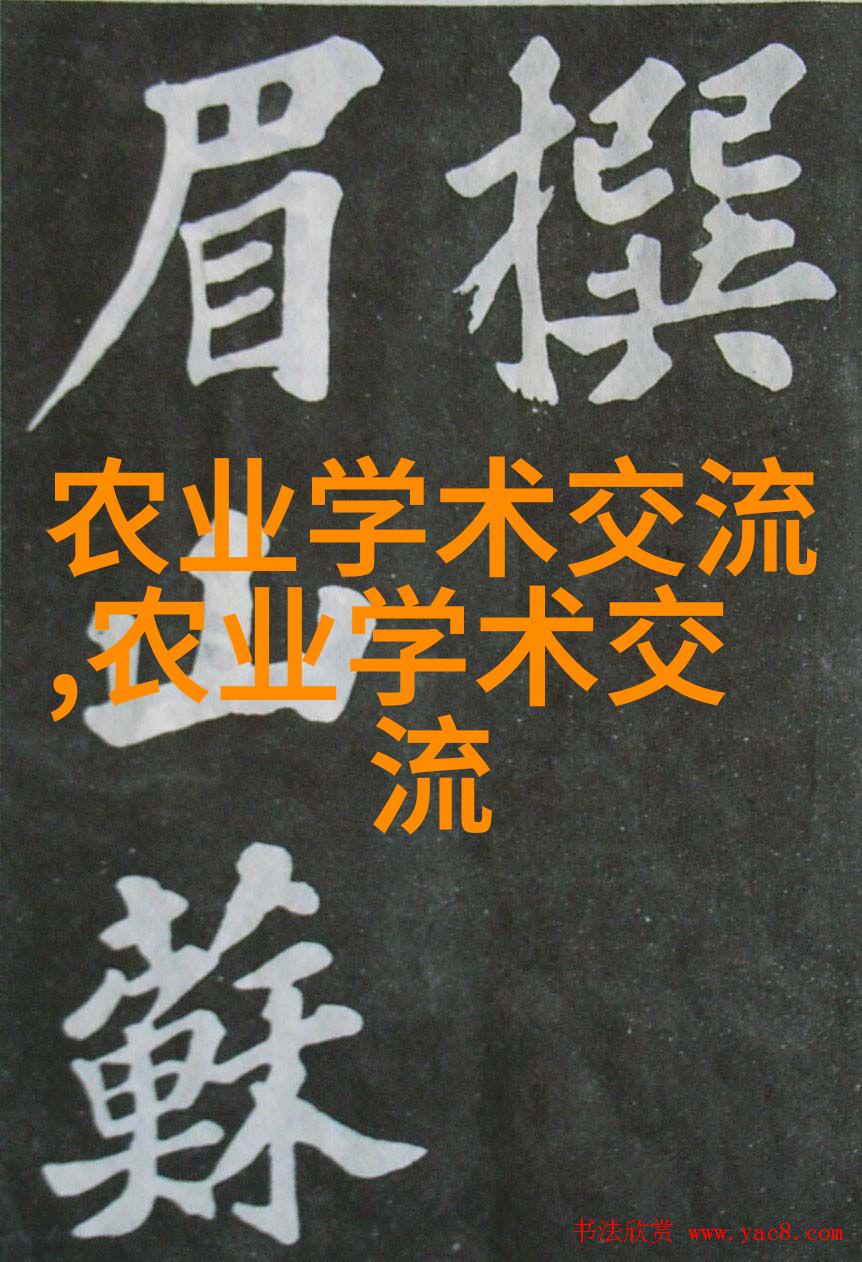 撰
眉山蘇
农业学术交流
,农业学术交
流
书法欣赏 www.yac8.com